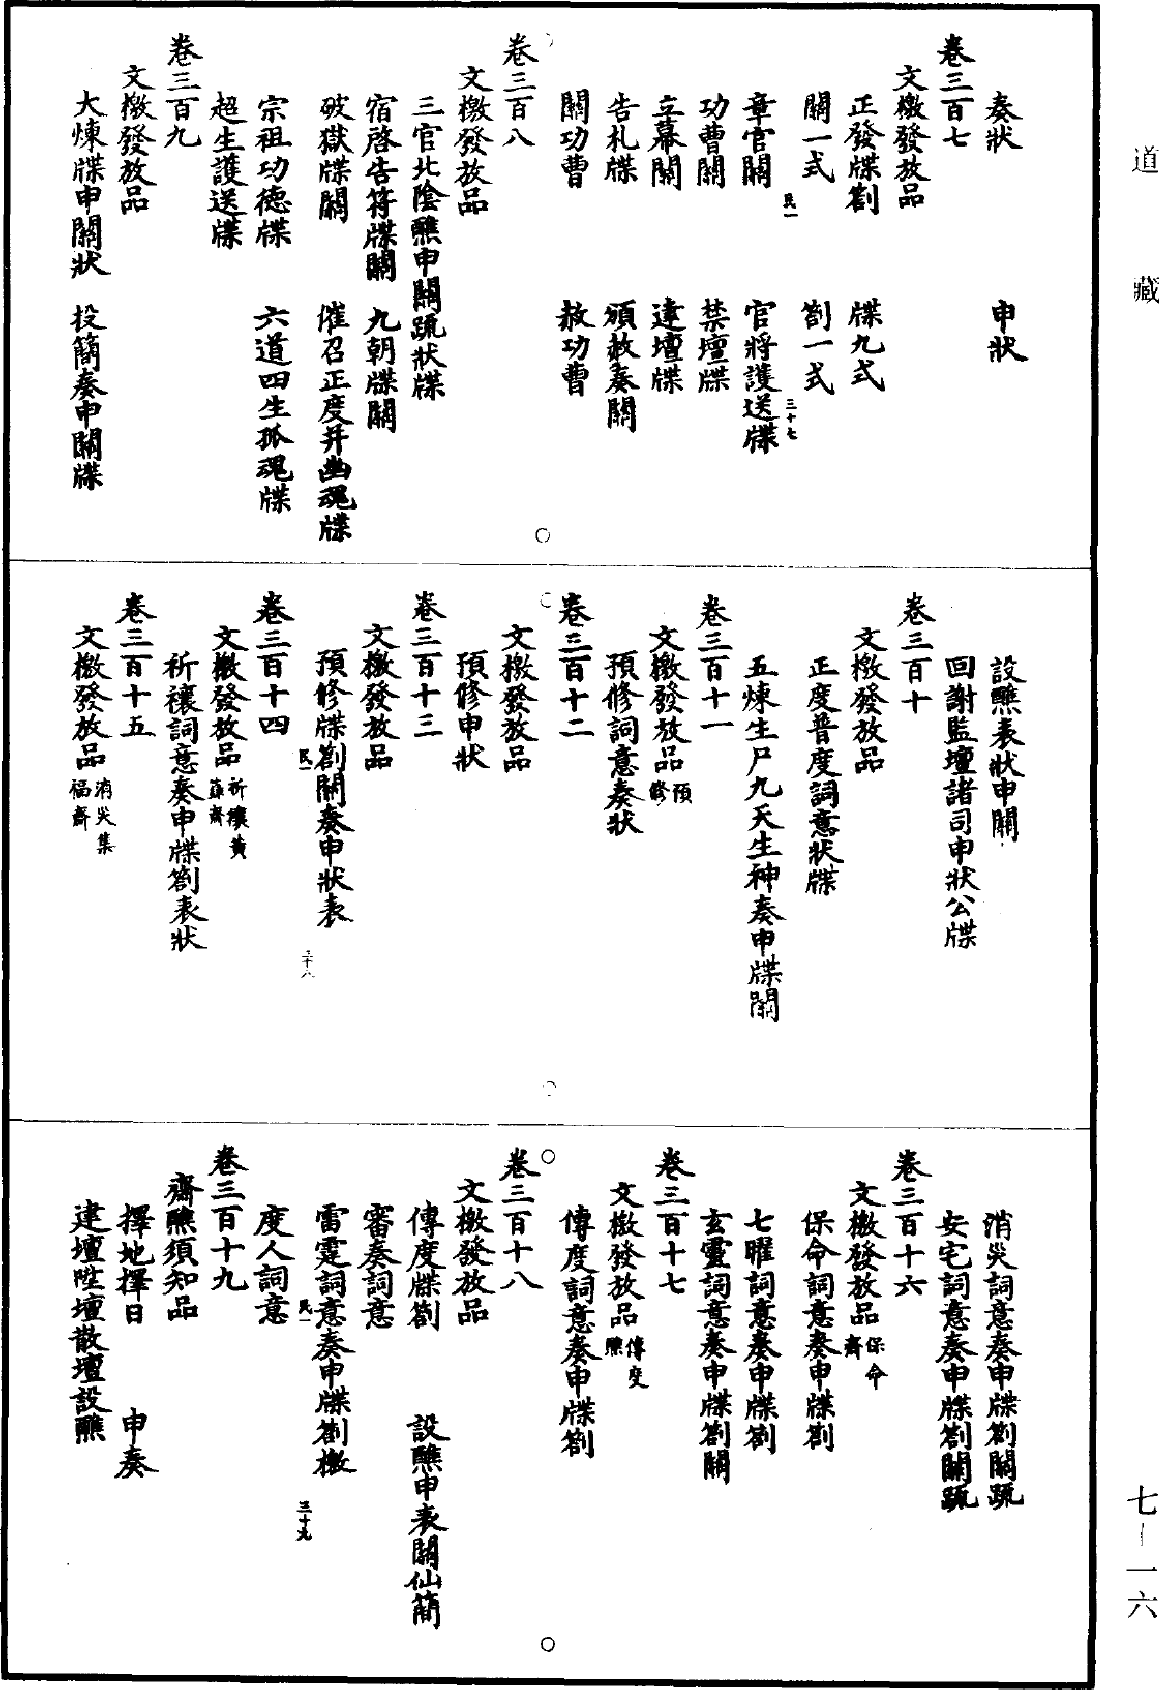 道藏
七—一六
奏狀　申狀
卷三百七
文檄發放品
正發牒劄　牒九式
關一式　劄一式
民一　三十七
章官關　官將護送牒
功曹關　禁壇牒
立幕關　建壇牒
告札牒　頒赦奏關
關功曹　赦功曹
卷三百八
文檄發放品
三官北陰醮申關疏狀牒
宿啓告符牒關　九朝牒關
破獄牒關　催召正度并幽魂牒
宗祖功德牒　六道四生孤魂牒
超生護送牒
卷三百九
文檄發放品
大煉牒申關狀　投簡奏申關牒
設醮表狀申關
回謝監壇諸司申狀公牒
卷三百十
文檄發放品
正度普度詞意狀牒
五煉生尸九天生神奏申牒關
卷三百十一
文檄發放品預修
預修詞意奏狀
卷三百十二
文檄發放品
預修申狀
卷三百十三
文檄發放品
預修牒劄關奏申狀表
民一　三十八
卷三百十四
文檄發放品祈禳黃籙齋
祈禳詞意奏申牒劄表狀
卷三百十五
文檄發放品消災集福齋
消災詞意奏申牒劄關疏
安宅詞意奏申牒劄關疏
卷三百十六
文檄發放品保命齋
保命詞意奏申牒劄
七曜詞意奏申牒劄
玄靈詞意奏申牒劄關
卷三百十七
文檄發放品傳度醮
傳度詞意奏申牒劄
卷三百十八
文檄發放品
傳度牒劄　設醮申表關仙簡
審奏詞意
雷霆詞意奏申牒劄檄
民一　三十九
度人詞意
卷三百十九
齋醮須知品
擇地擇日　申奏
建壇陞壇散壇設醮